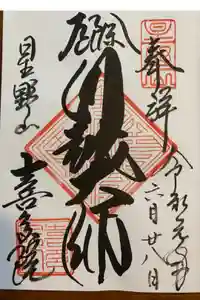 奉拝
令和元年
六月廿八日
厄除
元三大師
星野山
喜多院